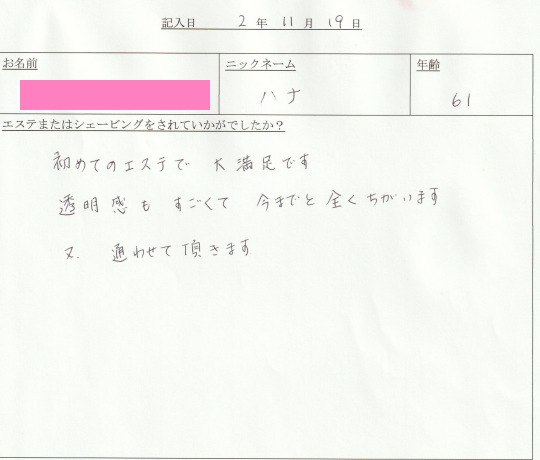 記入日 2 年 11 月 19 日
お名前 ニックネーム 年齢
ハナ 61
エステまたはシェービングをされていかがでしたか？
初めてのエステで 大満足です
透明感も すごくて 今までと全くちがいます
又、通わせて頂きます